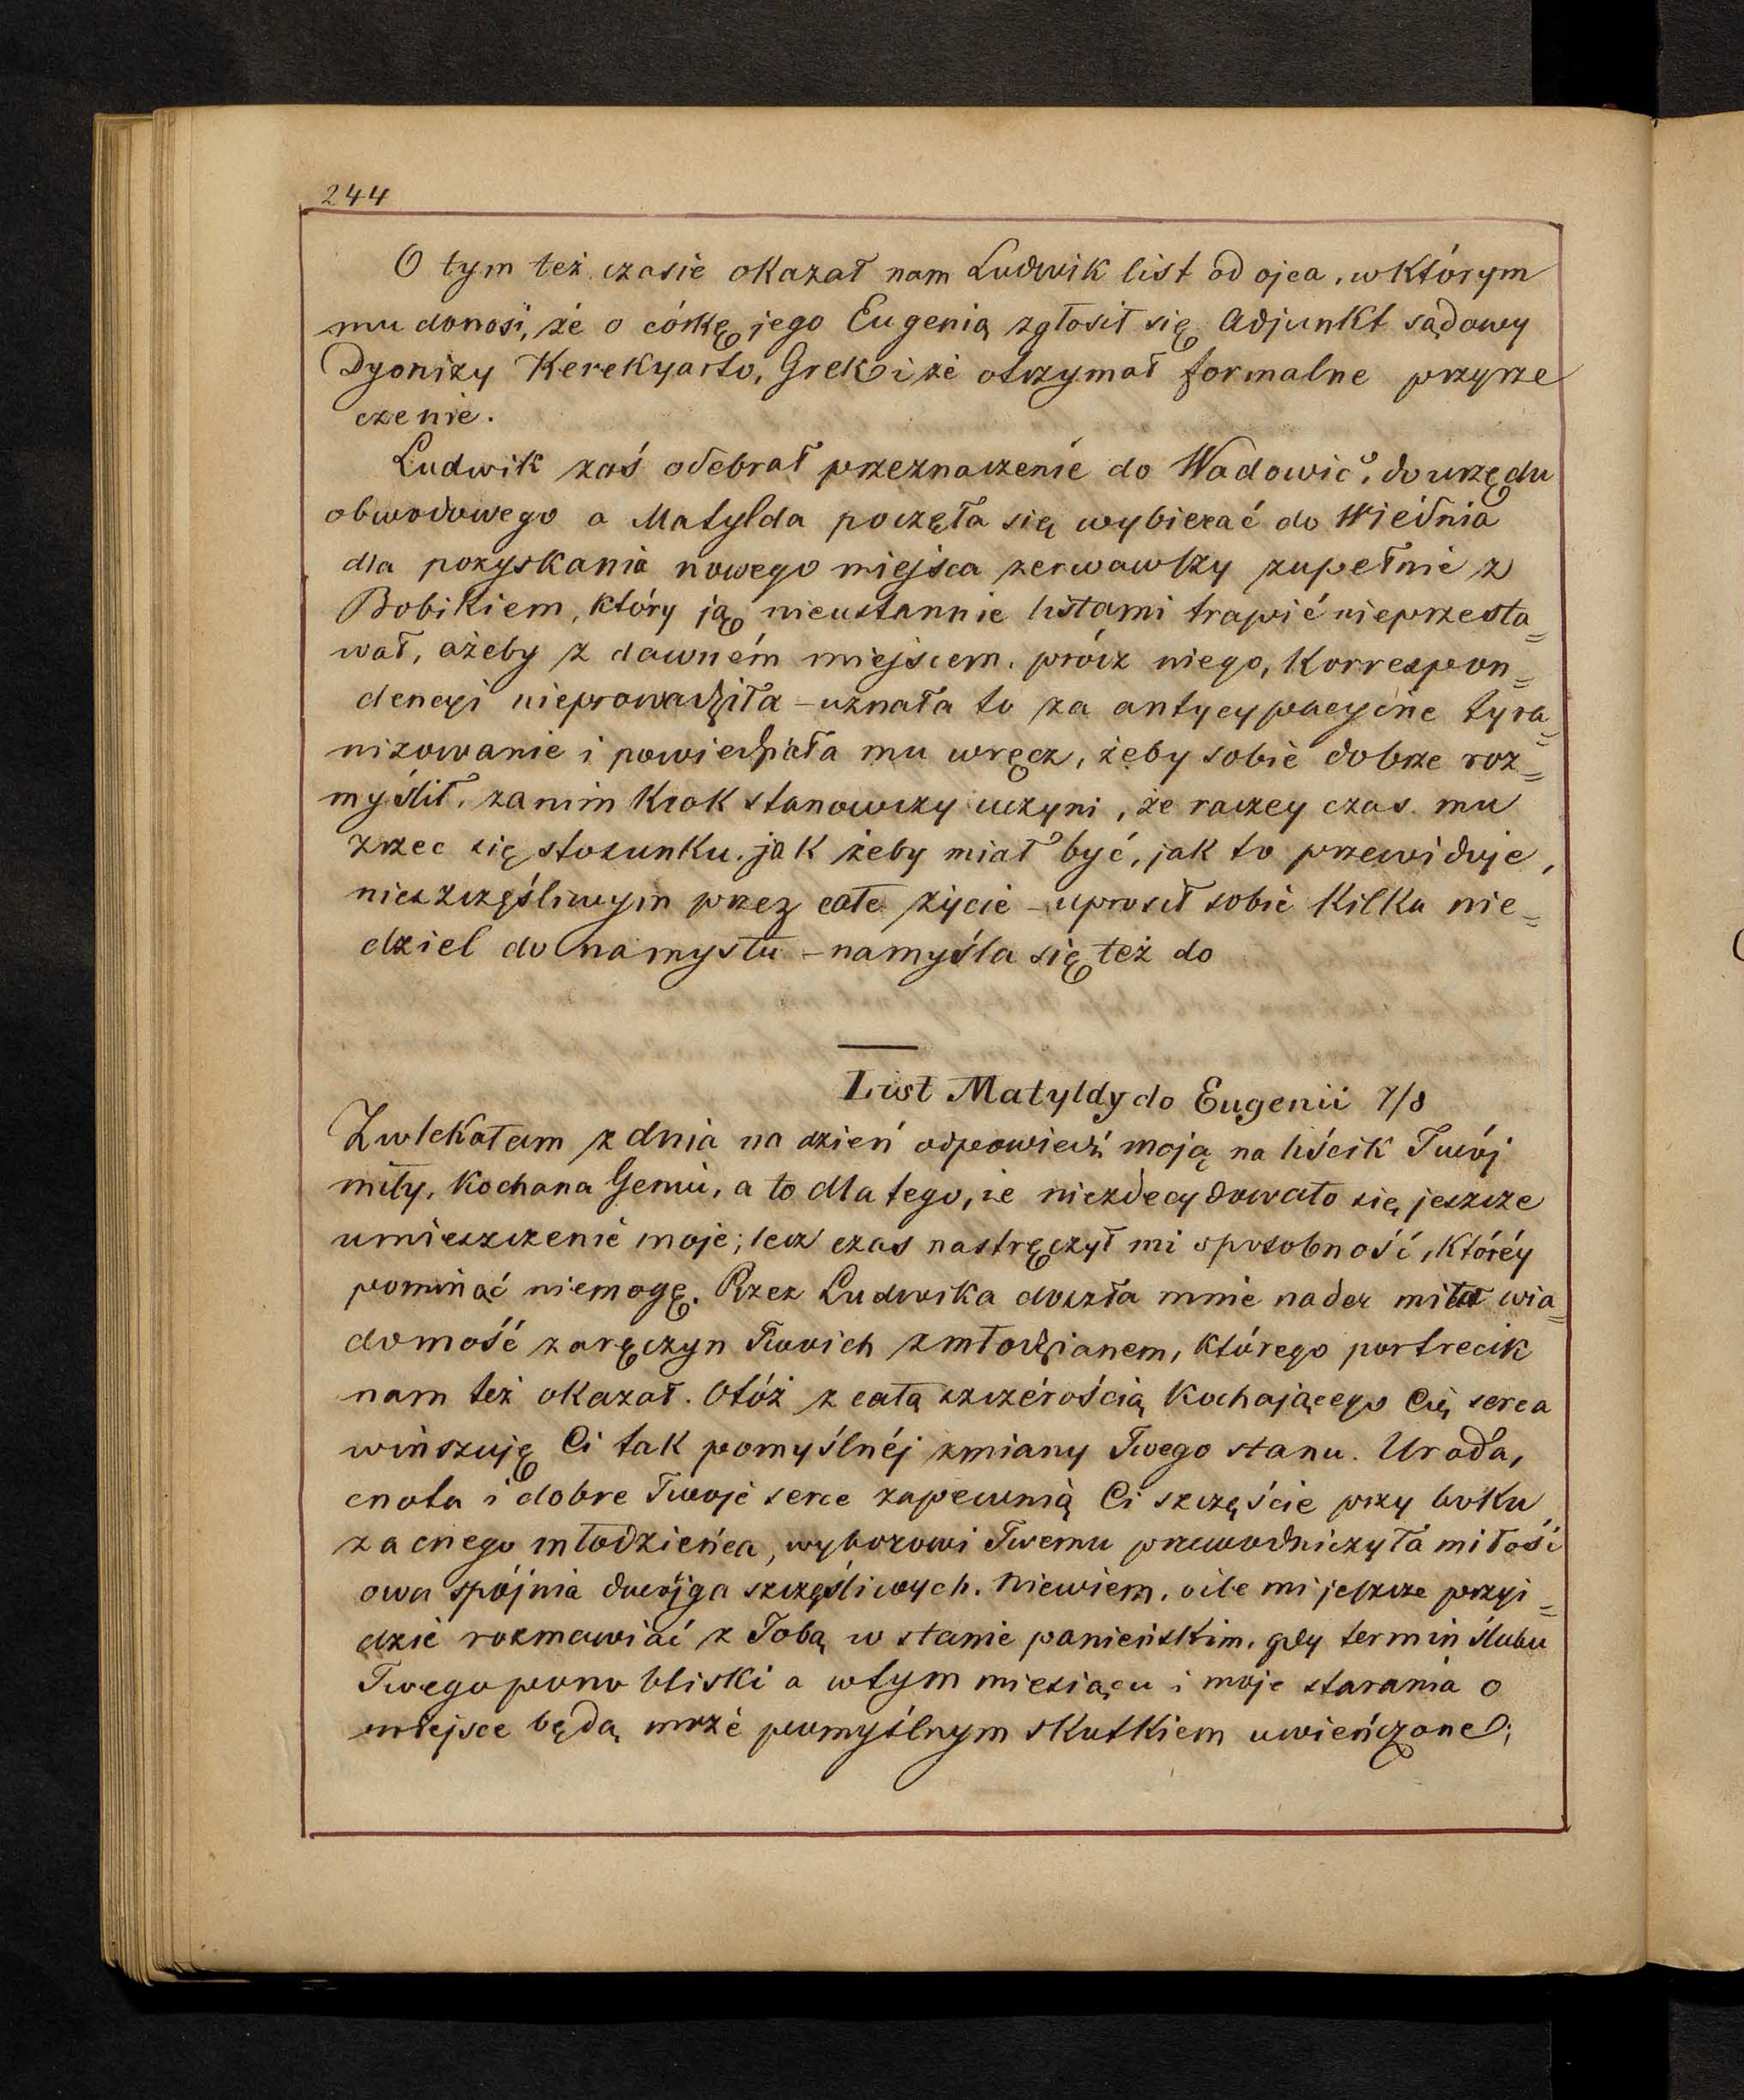 244
O tym też czasie okazał nam Ludwik list od ojca, w którym
mu donosi, że o córkę jego Eugenią zgłosił się Adjunkt sądowy
Dyonizy Kerekyarto, Grek i że otrzymał formalne przyrze
czenie.
Ludwik zaś odebrał przeznaczenie do Wadowic, do urzędu
obwodowego a Matylda poczęła się wybierać do Wiednia
dla pozyskania nowego miejsca zerwawszy zupełnie z
Bobikiem, który ją nieustannie listami trapić nieprzesta=
wał, ażeby z dawném miejscem, prócz niego, Korrespon=
dencyi nieprowadziła – uznała to za antycypacyjne tyra=
nizowanie i powiedziała mu wręcz, żeby sobie dobrze roz=
myślił, zanim krok stanowczy uczyni, że raczey czas mu
zrzec się stosunku, jak żeby miał być, jak to przewiduje,
nieszczęśliwym przez całe życie – uprosił sobie kilka nie=
dziel do namysłu – namyśla się też do
List Matyldy do Eugenii 7/8
Zwlekałam z dnia na dzień odpowiedź moją na liścik Twój
miły, Kochana Geniu, a to dla tego, że niezdecydowało się jeszcze
umieszczenie moje; lecz czas nastręczył mi sposobność, któréy
pominąć niemogę. Przez Ludwika doszła mnie nader miła wia=
domość zaręczyn Twoich z młodzianem, którego portrecik
nam też okazał. Otóż z całą szczérością Kochającego Cię serca
winszuję Ci tak pomyślnéj zmiany Twego stanu. Uroda,
cnota i dobre Twoje serce zapewnią Ci szczęście przy boku
zacnego młodzieńca, wyborowi Twemu przewodniczyła miłość
owa spójnia dwójga szczęśliwych. Niewiem, oile mi jeszcze przyi=
dzie rozmawiać z Tobą w stanie panieńskim, gdy termin ślubu
Twego pono bliski a wtym miesiącu i moje starania o
miejsce będą może pomyślnym skutkiem uwieńczone;